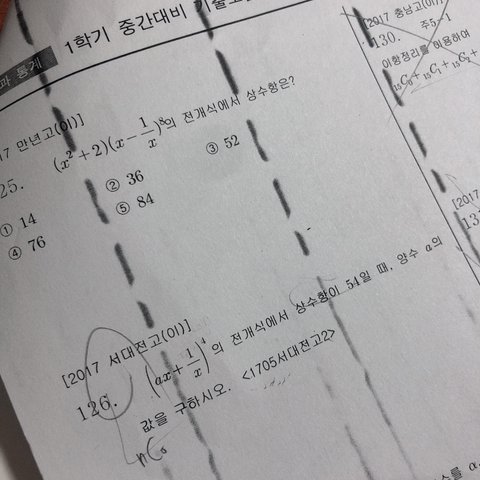 과 통계
1학기 중간대비
17 만년고(이)]
25. (x²+2)(x-1/x)⁸의 전개식에서 상수항은?
① 14 ② 36 ③ 52
④ 76 ⑤ 84
[2017 서대전고(이)]
126. (ax+1/x)⁴의 전개식에서 상수항이 54일 때, 양수 a의
값을 구하시오. <1705서대전고2>
[2017 충남고(이)]
130. 주5-1
이항정리를 이용하여
₁₅C₀+₁₅C₁+₁₅C₂+
[20
13